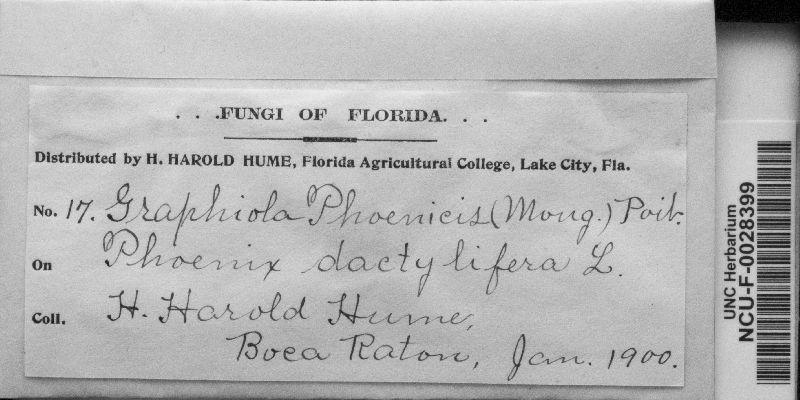 . . .FUNGI OF FLORIDA. . .
Distributed by H. HAROLD HUME, Florida Agricultural College, Lake City, Fla.
No. 17. Graphiola Phoenicis (Moug.) Poit.
On Phoenix dactylifera L.
Coll. H. Harold Hume,
Boca Raton, Jan. 1900.
UNC Herbarium
NCU-F-0028399